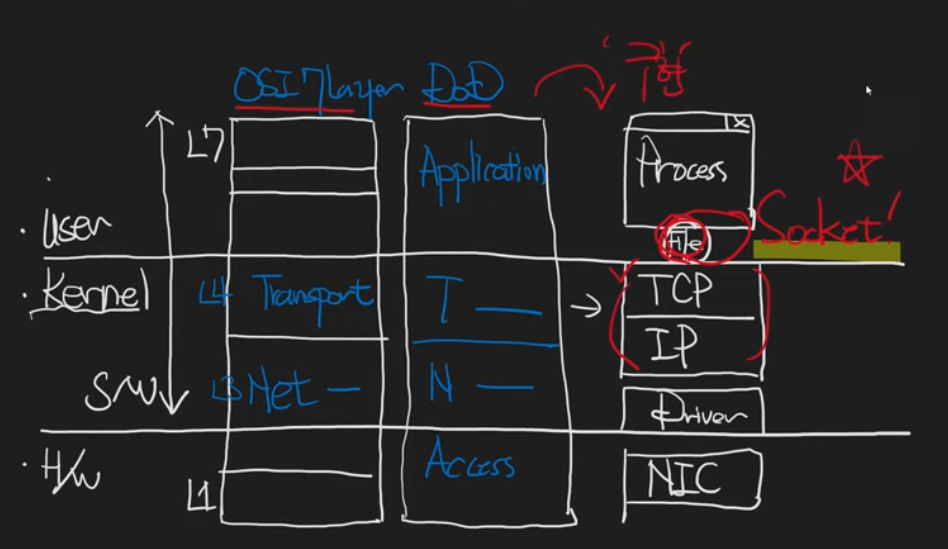 OSI 7 Layer DoD 구현
L7
Application
Process
User
File
Socket!
Kernel
L4 Transport
T
TCP
IP
S/W
L3 Net
N
Driver
H/W
Access
NIC
L1